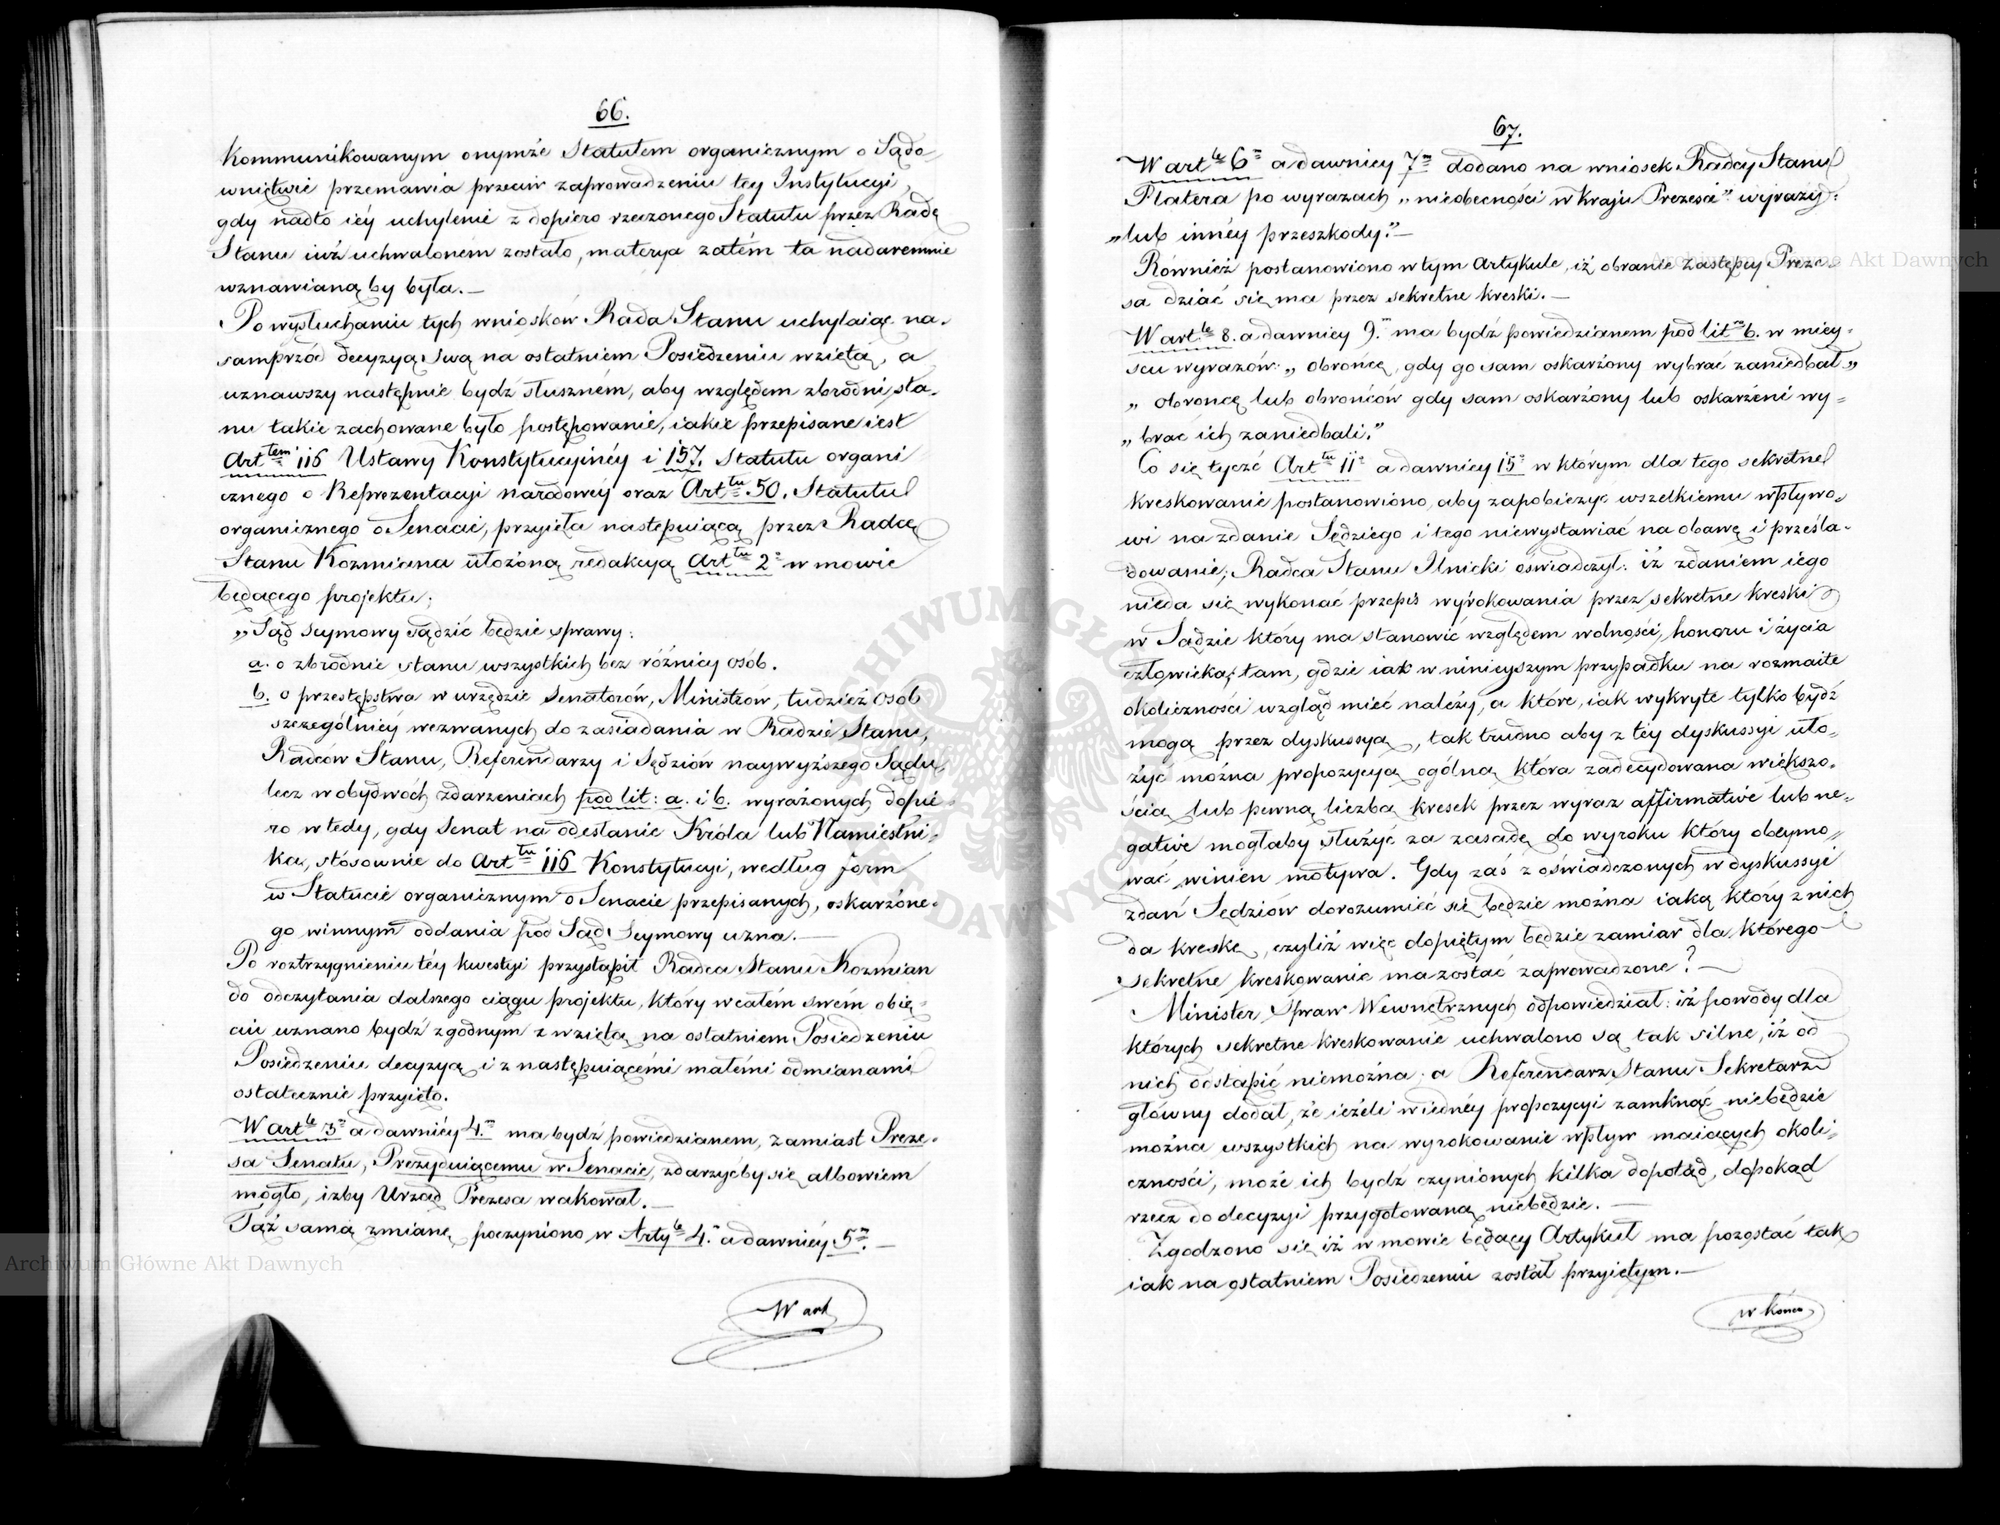 66.
Kommunikowanym onymże Statutem organicznym o Sądo-
wnictwie przemawia przeciw zaprowadzeniu tey Instytucyi,
gdy nadto iéy uchylenie z dopiero rzeczonego Statutu przez Radę
Stanu iuż uchwalonem zostało, materya zatém ta nadaremnie
wznawianą by była.—
Po wysłuchaniu tych wniosków Rada Stanu uchylaiąc na-
samprzód decyzyą swą na ostatniem Posiedzeniu wziętą, a
uznawszy następnie bydź słuszném, aby względem zbrodni sta-
nu takie zachowane było postępowanie, iakie przepisane iest
Art tem 116 Ustawy Konstytucyinéy i 157. Statutu organi
cznego o Reprezentacyi narodowéy oraz Art tu 50. Statutu
organicznego o Senacie, przyięła następuiącą przez Radcę
Stanu Kozmiana ułożoną redakcyą Art tu 2o w mowie
będącego projektu;
„Sąd Seymowy sądzić będzie sprawy:
a. o zbrodnie stanu wszystkich bez różnicy osób.
b. o przestępstwa w urzędzie Senatorów, Ministrów, tudzież osób
szczególniéy wezwanych do zasiadania w Radzie Stanu,
Radców Stanu, Referendarzy i Sędziów naywyższego Sądu,
lecz w obydwóch zdarzeniach pod lit: a. i b. wyrażonych dopie-
ro wtedy, gdy Senat na odesłanie Króla lub Namiestni-
ka, stósownie do Art tu 116 Konstytucyi, według form
w Statucie organicznym o Senacie przepisanych, oskarżone-
go winnym oddania pod Sąd Seymowy uzna.—
Po roztrzygnieniu téy kwestyi przystąpił Radca Stanu Kozmian
do odczytania dalszego ciągu projektu, który w całém swém obię-
ciu uznano bydź zgodnym z wziętą na ostatniem Posiedzeniu
Posiedzeniu decyzyą i z następuiącémi małémi odmianami
ostatecznie przyięto.
W art le 3m a dawniéy 4.m ma bydź powiedzianem, zamiast Preze-
sa Senatu, Prezyduiącemu w Senacie, zdarzyćby się albowiem
mogło, iżby Urząd Prezesa wakował.—
Táż samą zmianę poczyniono w Arty le 4.m a dawniéy 5m.—
W art
67.
W art le 6m a dawniey 7m dodano na wniosek Radcy Stanu
Platera po wyrazach „nieobecności w kraju Prezesa” wyrazy:
„lub innéy przeszkody.”—
Również postanowiono w tym Artykule, iż obranie zastępcy Preze-
sa dziać się ma przez sekretne kreski.—
W art le 8. a dawniey 9.m ma bydź powiedzianem pod lit ra b. w miey-
scu wyrazów: „obrońcę, gdy go sam oskarżony wybrać zaniedbał”
„obrońcę lub obrońców gdy sam oskarżony lub oskarżeni wy-
„brać ich zaniedbali.”
Co się tycze Art tu 11o a dawniey 15o w którym dla tego sekretne
kreskowanie postanowiono, aby zapobieżyć wszelkiemu wpływo-
wi na zdanie Sędziego i tego niewystawiać na obawę i prześla-
dowanie; Radca Stanu Ilnicki oświadczył: iż zdaniem iego
nieda się wykonać przepis wyrokowania przez sekretne kreski
w Sądzie który ma stanowić względem wolności, honoru i życia
człowieka; tam, gdzie iak w ninieyszym przypadku na rozmaite
okoliczności wzgląd mieć należy, a które, iak wykryte tylko bydź
mogą przez dyskussyą, tak trudno aby z téy dyskussyi uło-
żyć można propozycyą ogólną która zadecydowana większo-
ścią lub pewną liczbą kresek przez wyraz affirmative lub ne-
gative mogłaby służyć za zasadę do wyroku który obeymo-
wać winien motywa. Gdy zaś z oświadczonych w dyskussyi
zdań Sędziów dorozumieć się będzie można iaką który z nich
da kreskę, czyliż więc dopiętym będzie zamiar dla którego
sekretne kreskowanie ma zostać zaprowadzone?—
Minister Spraw Wewnętrznych odpowiedział: iż powody dla
których sekretne kreskowanie uchwalono są tak silne, iż od
nich odstąpić niemożna; a Referendarz Stanu Sekretarz
główny dodał, że ieżeli w iednéy propozycyi zamknąć niebędzie
można wszystkich na wyrokowanie wpływ maiących okoli-
czności, może ich bydź czynionych kilka dopotąd, dopokąd
rzecz do decyzyi przygotowaną niebędzie.—
Zgodzono się iż w mowie będący Artykuł ma pozostać tak
iak na ostatniem Posiedzeniu został przyiętym.—
w końcu
Archiwum Główne Akt Dawnych
Archiwum Główne Akt Dawnych
ARCHIWUM GŁÓWNE AKT DAWNYCH